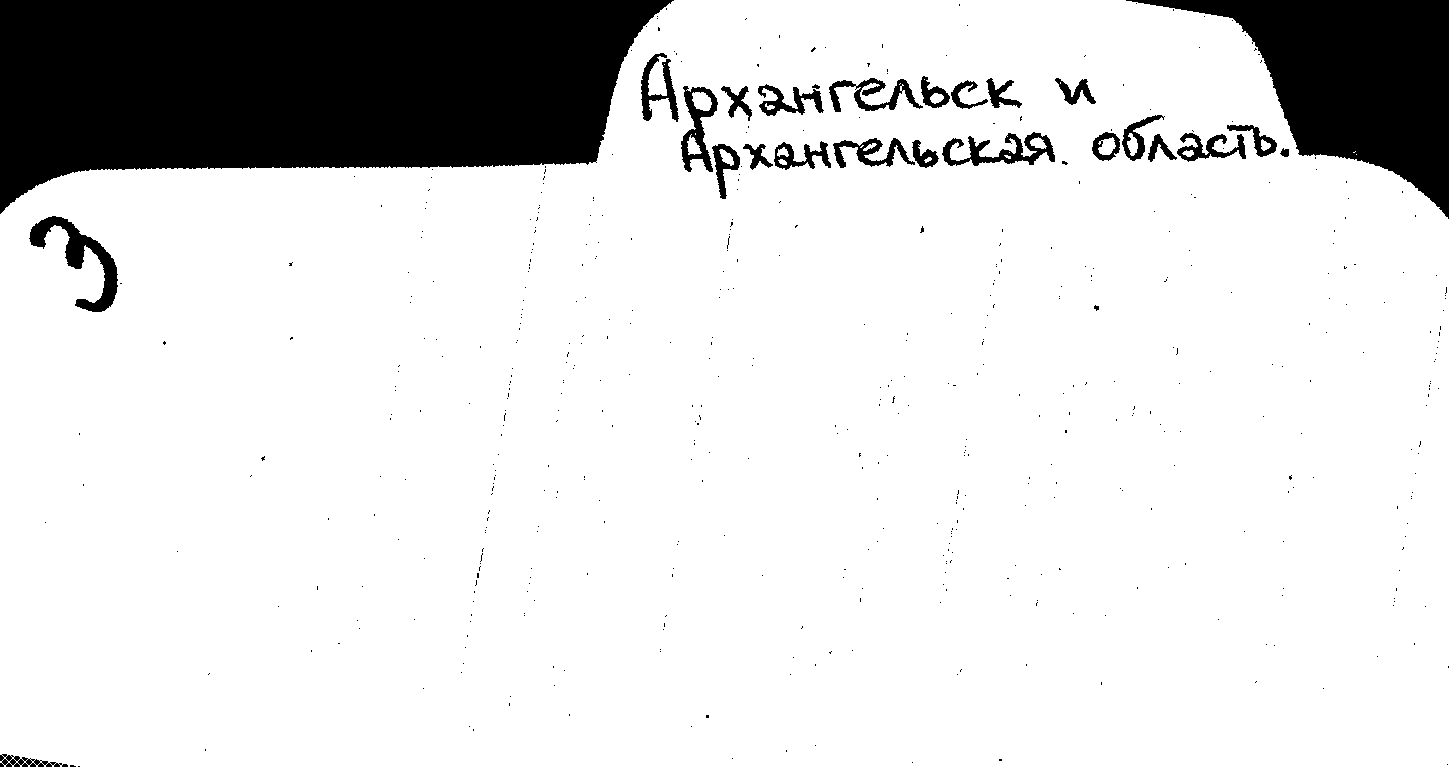 Архангельск и
Архангельская область.
3